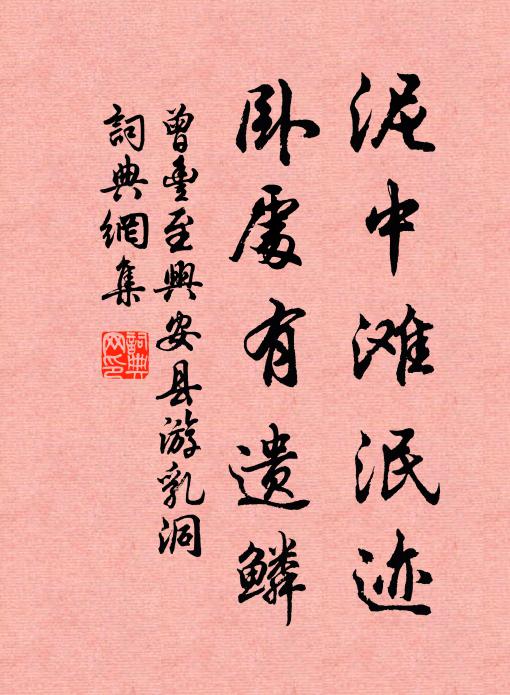 泥中滩泯迹
卧處有遗鳞
曾豊至興安县游乳洞
詞典網集
詞典网印